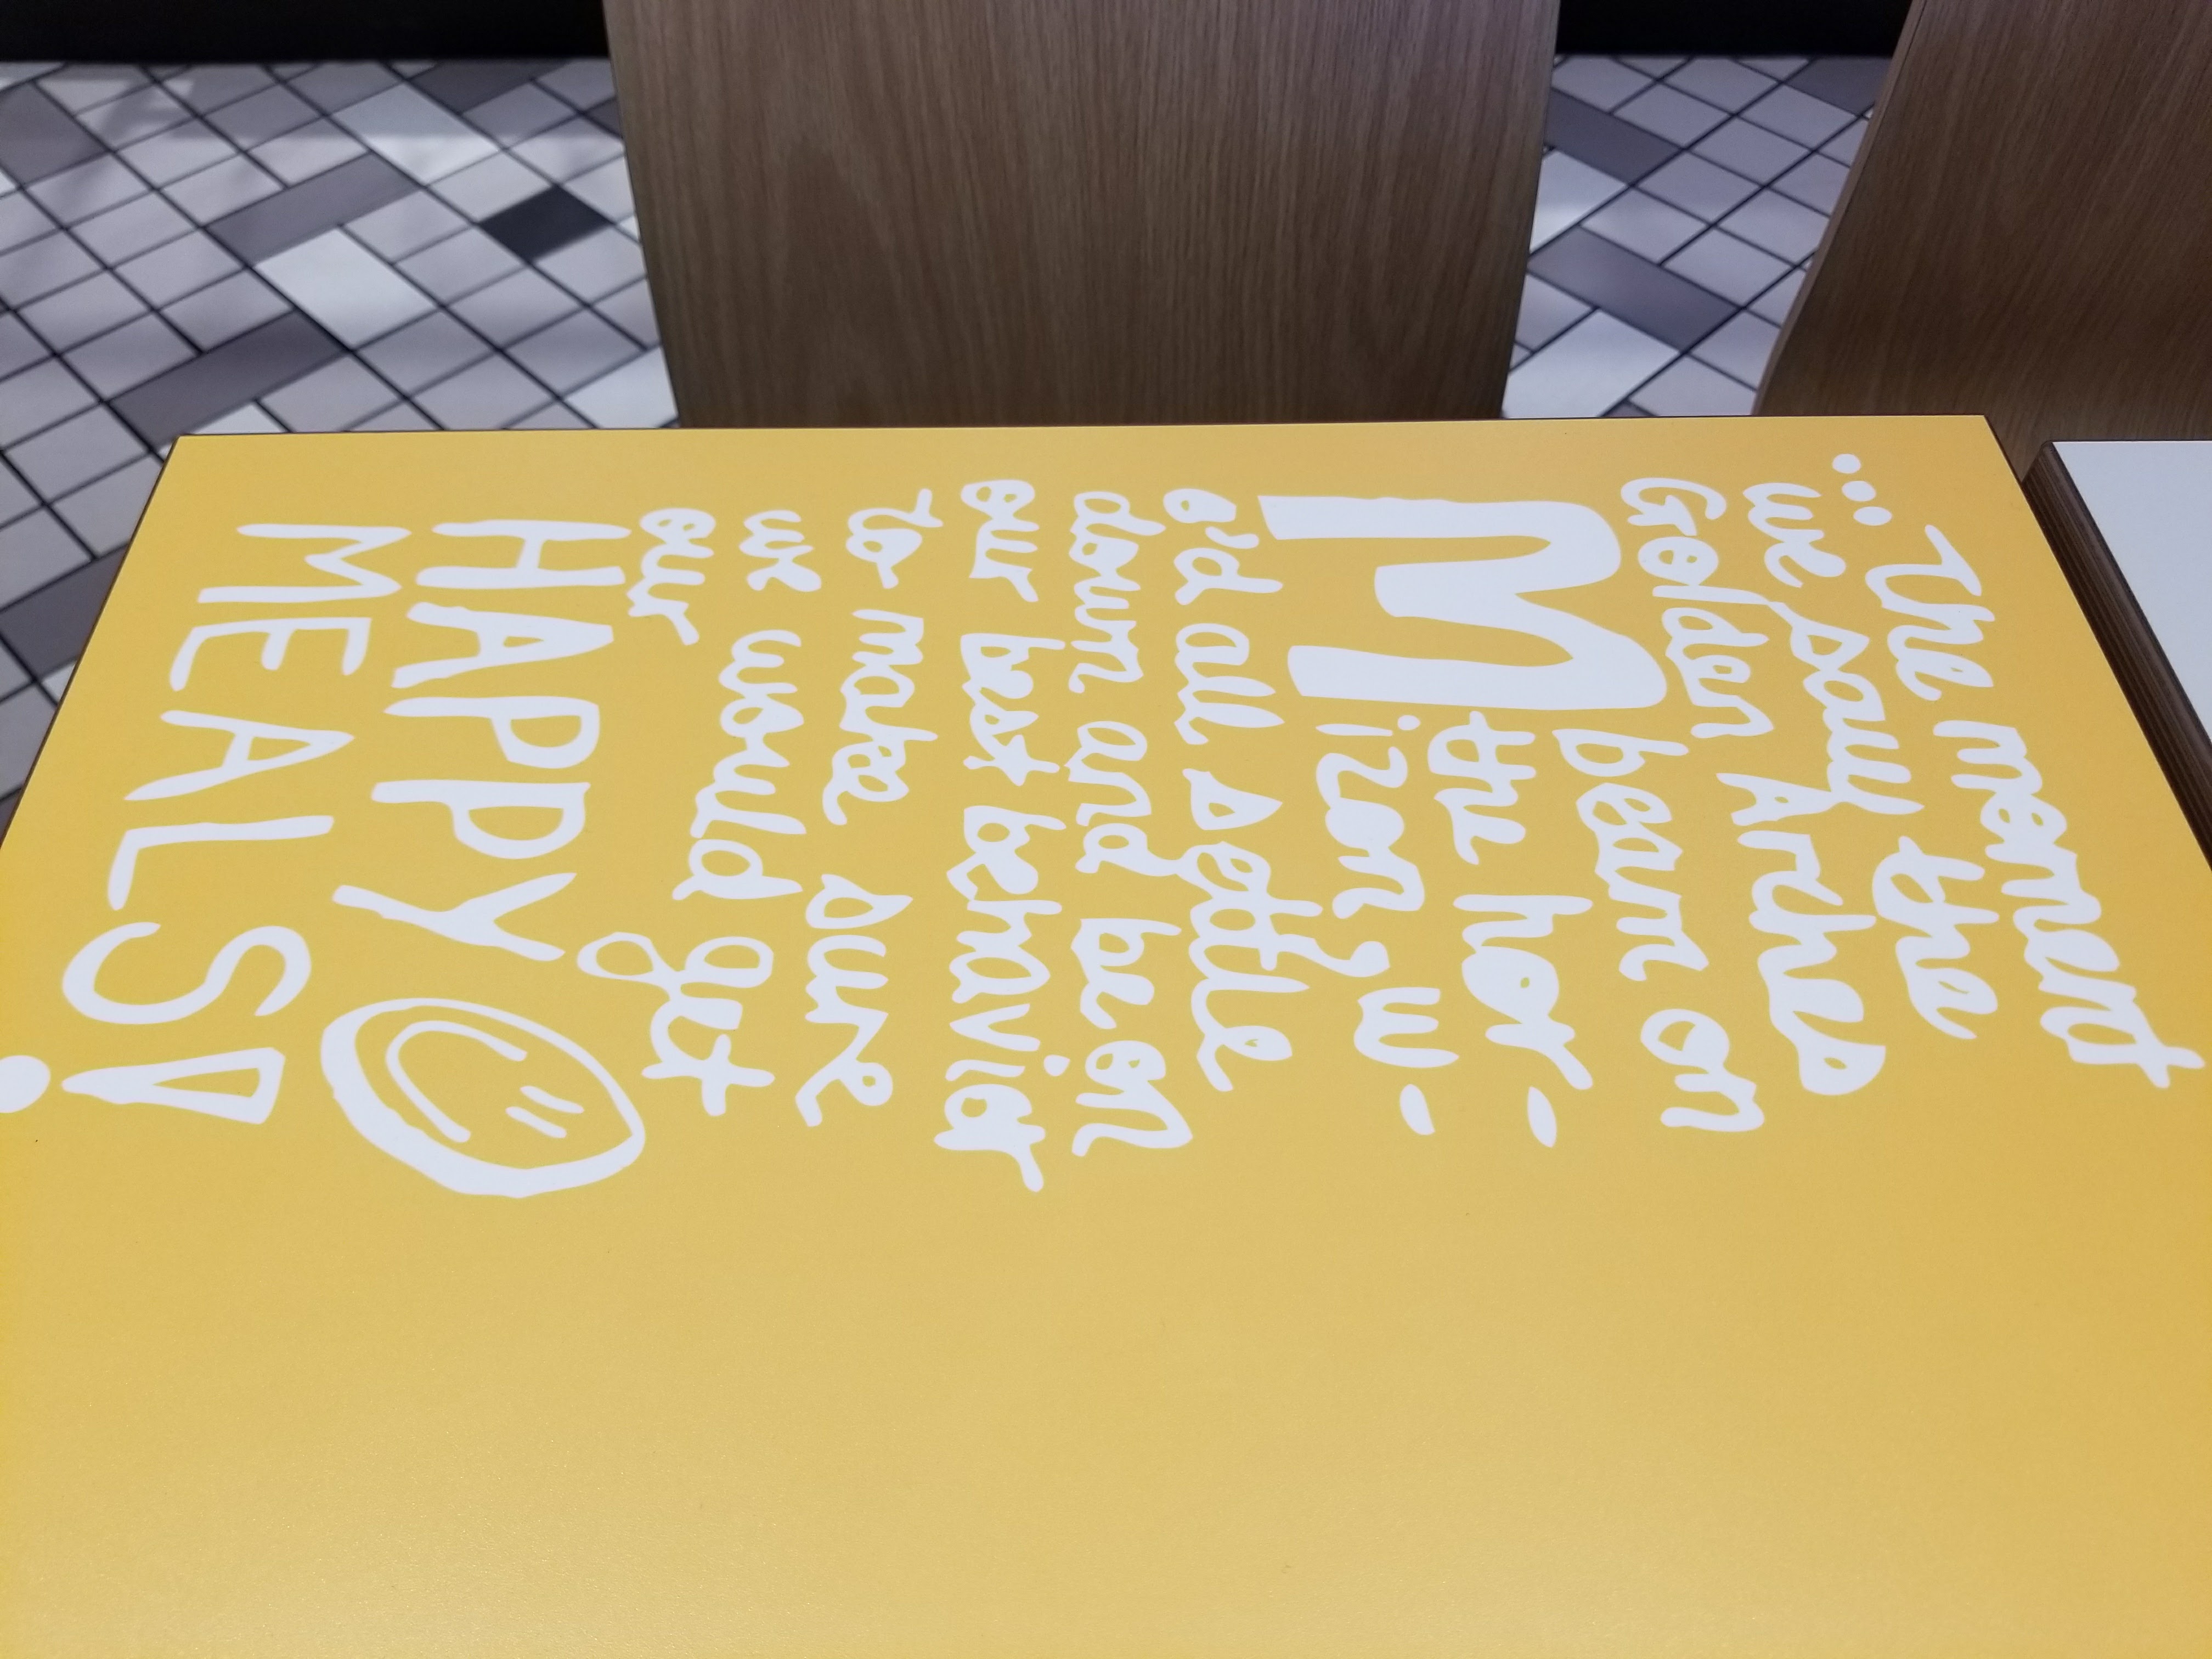 ...The moment
we saw the
Golden Arches
M beam on
the hor-
izon, w-
e'd all settle
down and be on
our best behavior
to make sure
we would get
our
HAPPY
MEALS!